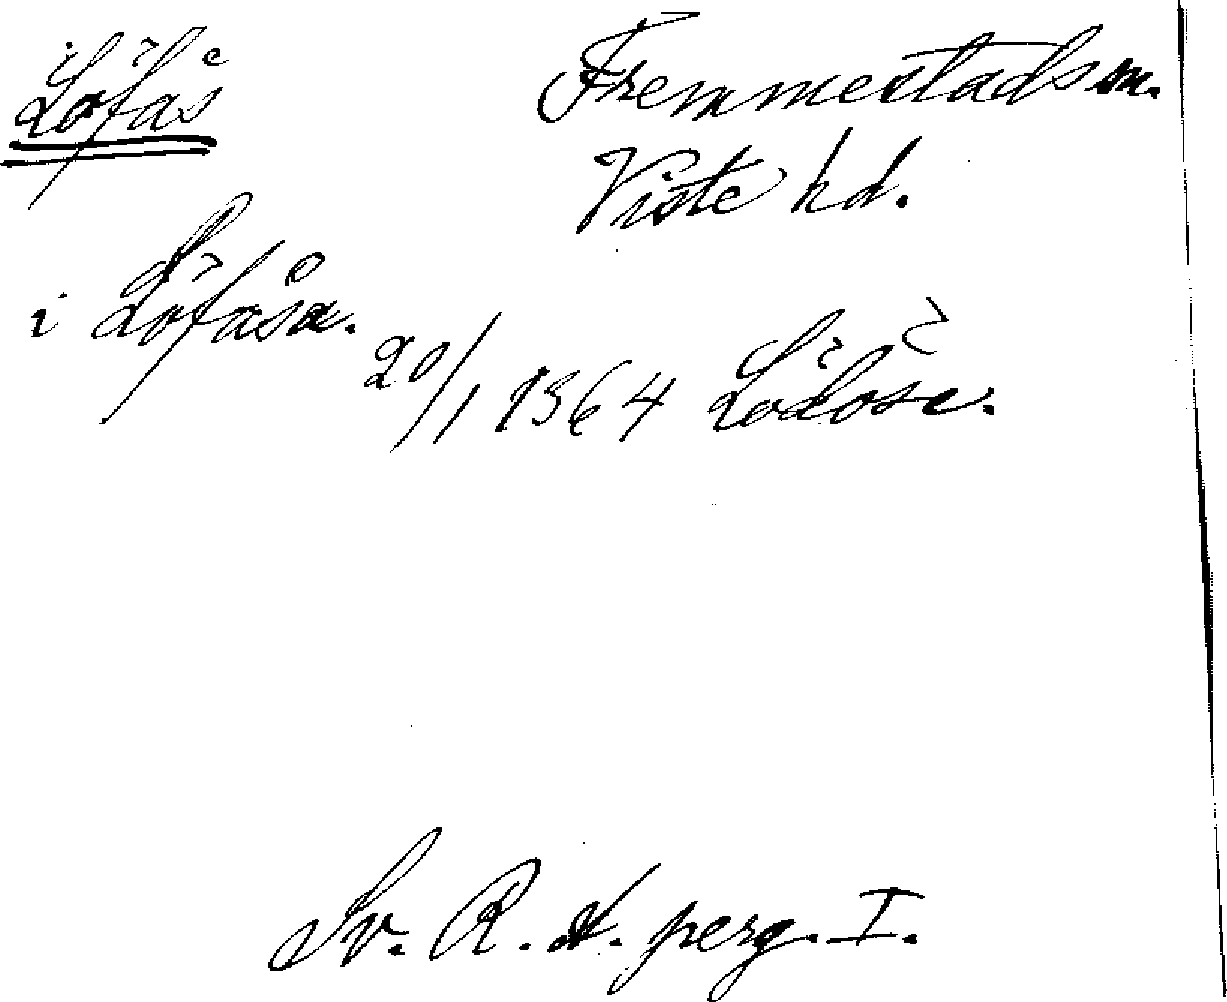 Löfås Fremmestads sn.
Viste hd.
i Löfåsa.
20/1 1364 Lödöse.
Sv. R. A. perg. I.